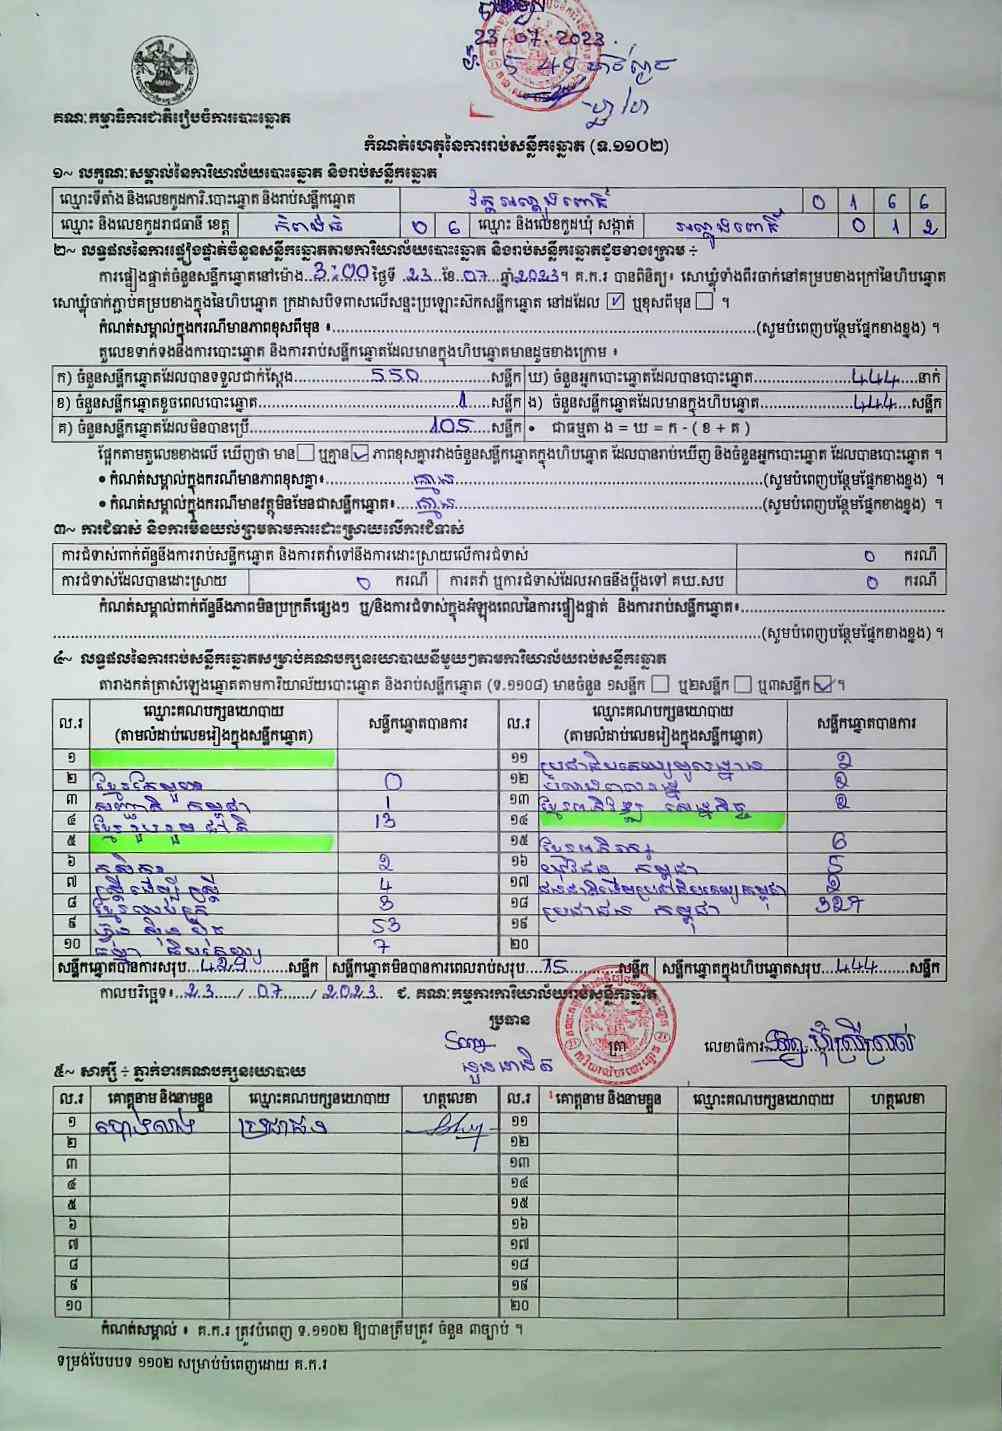 23.07.2023
គណៈកម្មាធិការជាតិរៀបចំការបោះឆ្នោត
កំណត់ហេតុនៃការរាប់សន្លឹកឆ្នោត (ទ.១១០២)
១~ លក្ខណៈសម្គាល់នៃការិយាល័យបោះឆ្នោត និងរាប់សន្លឹកឆ្នោត
ឈ្មោះទីតាំង និងលេខកូដការិ.បោះឆ្នោត និងរាប់សន្លឹកឆ្នោត 0 1 6 6
ឈ្មោះ និងលេខកូដរាជធានី ខេត្ត កំពង់ធំ 0 6 ឈ្មោះ និងលេខកូដឃុំ សង្កាត់ 0 1 2
២~ លទ្ធផលនៃការផ្ទៀងផ្ទាត់ចំនួនសន្លឹកឆ្នោតតាមការិយាល័យបោះឆ្នោត និងរាប់សន្លឹកឆ្នោតដូចខាងក្រោម ÷
ការផ្ទៀងផ្ទាត់ចំនួនសន្លឹកឆ្នោតនៅម៉ោង 3:00 ថ្ងៃទី 23 ខែ 07 ឆ្នាំ 2023។ គ.ក.រ បានពិនិត្យ៖ សោឃ្លុំទាំងពីរចាក់នៅគម្របខាងក្រៅនៃហិបឆ្នោត
សោឃ្លុំចាក់ភ្ជាប់គម្របខាងក្នុងនៃហិបឆ្នោត ក្រដាសបិទពាសលើសន្ទះប្រឡោះស៊កសន្លឹកឆ្នោត នៅដដែល ☑ ឬខុសពីមុន ☐ ។
កំណត់សម្គាល់ក្នុងករណីមានភាពខុសពីមុន ៖ (សូមបំពេញបន្ថែមផ្នែកខាងខ្នង) ។
តួលេខទាក់ទងនឹងការបោះឆ្នោត និងការរាប់សន្លឹកឆ្នោតដែលមានក្នុងហិបឆ្នោតមានដូចខាងក្រោម ៖
ក) ចំនួនសន្លឹកឆ្នោតដែលបានទទួលជាក់ស្តែង 550 សន្លឹក ឃ) ចំនួនអ្នកបោះឆ្នោតដែលបានបោះឆ្នោត 444 នាក់
ខ) ចំនួនសន្លឹកឆ្នោតខូចពេលបោះឆ្នោត 1 សន្លឹក ង) ចំនួនសន្លឹកឆ្នោតដែលមានក្នុងហិបឆ្នោត 444 សន្លឹក
គ) ចំនួនសន្លឹកឆ្នោតដែលមិនបានប្រើ 105 សន្លឹក • ជាធម្មតា ង = ឃ = ក - ( ខ + គ )
ផ្អែកតាមតួលេខខាងលើ ឃើញថា មាន ☐ ឬគ្មាន ☑ ភាពខុសគ្នារវាងចំនួនសន្លឹកឆ្នោតក្នុងហិបឆ្នោត ដែលបានរាប់ឃើញ និងចំនួនអ្នកបោះឆ្នោត ដែលបានបោះឆ្នោត ។
• កំណត់សម្គាល់ក្នុងករណីមានភាពខុសគ្នា៖ គ្មាន (សូមបំពេញបន្ថែមផ្នែកខាងខ្នង) ។
• កំណត់សម្គាល់ក្នុងករណីមានវត្ថុមិនមែនជាសន្លឹកឆ្នោត៖ គ្មាន (សូមបំពេញបន្ថែមផ្នែកខាងខ្នង) ។
៣~ ការជំទាស់ និងការមិនយល់ព្រមតាមការដោះស្រាយលើការជំទាស់
ការជំទាស់ពាក់ព័ន្ធនឹងការរាប់សន្លឹកឆ្នោត និងការតវ៉ាទៅនឹងការដោះស្រាយលើការជំទាស់ 0 ករណី
ការជំទាស់ដែលបានដោះស្រាយ 0 ករណី ការតវ៉ា ឬការជំទាស់ដែលអាចនឹងប្តឹងទៅ គឃ.សប 0 ករណី
កំណត់សម្គាល់ពាក់ព័ន្ធនឹងភាពមិនប្រក្រតីផ្សេងៗ ឬ/និងការជំទាស់ក្នុងអំឡុងពេលនៃការផ្ទៀងផ្ទាត់ និងការរាប់សន្លឹកឆ្នោត៖
(សូមបំពេញបន្ថែមផ្នែកខាងខ្នង) ។
៤~ លទ្ធផលនៃការរាប់សន្លឹកឆ្នោតសម្រាប់គណបក្សនយោបាយនីមួយៗតាមការិយាល័យរាប់សន្លឹកឆ្នោត
តារាងកត់ត្រាសំឡេងឆ្នោតតាមការិយាល័យបោះឆ្នោត និងរាប់សន្លឹកឆ្នោត (ទ.១១០៨) មានចំនួន ១សន្លឹក ☐ ឬ២សន្លឹក ☐ ឬ៣សន្លឹក ☑ ។
ល.រ ឈ្មោះគណបក្សនយោបាយ (តាមលំដាប់លេខរៀងក្នុងសន្លឹកឆ្នោត) សន្លឹកឆ្នោតបានការ ល.រ ឈ្មោះគណបក្សនយោបាយ (តាមលំដាប់លេខរៀងក្នុងសន្លឹកឆ្នោត) សន្លឹកឆ្នោតបានការ
១ ១១ 2
២ 0 ១២ 2
៣ សញ្ជាតិ កម្ពុជា 1 ១៣ ខ្មែរអភិវឌ្ឍ សេដ្ឋកិច្ច 2
៤ ខ្មែររួបរួមជាតិ 13 ១៤
៥ ១៥ 6
៦ កសិករ 2 ១៦ យុវជន កម្ពុជា 5
៧ ស្ត្រីដើម្បីស្ត្រី 4 ១៧ ជនជាតិដើមប្រជាធិបតេយ្យកម្ពុជា 2
៨ 3 ១៨ ប្រជាជន កម្ពុជា 327
៩ ហ៊្វុនស៊ិនប៉ិច 53 ១៩
១០ ធម្មាធិបតេយ្យ 7 ២០
សន្លឹកឆ្នោតបានការសរុប 429 សន្លឹក សន្លឹកឆ្នោតមិនបានការពេលរាប់សរុប 15 សន្លឹក សន្លឹកឆ្នោតក្នុងហិបឆ្នោតសរុប 444 សន្លឹក
កាលបរិច្ឆេទ៖ 23 / 07 / 2023 ជ. គណៈកម្មការការិយាល័យរាប់សន្លឹកឆ្នោត
ប្រធាន
ត្រា
លេខាធិការ
៥~ សាក្សី ÷ ភ្នាក់ងារគណបក្សនយោបាយ
ល.រ គោត្តនាម និងនាមខ្លួន ឈ្មោះគណបក្សនយោបាយ ហត្ថលេខា ល.រ គោត្តនាម និងនាមខ្លួន ឈ្មោះគណបក្សនយោបាយ ហត្ថលេខា
១ ប្រជាជន ១១
២ ១២
៣ ១៣
៤ ១៤
៥ ១៥
៦ ១៦
៧ ១៧
៨ ១៨
៩ ១៩
១០ ២០
កំណត់សម្គាល់ ៖ គ.ក.រ ត្រូវបំពេញ ទ.១១០២ ឱ្យបានត្រឹមត្រូវ ចំនួន ៣ច្បាប់ ។
ទម្រង់បែបបទ ១១០២ សម្រាប់បំពេញដោយ គ.ក.រ